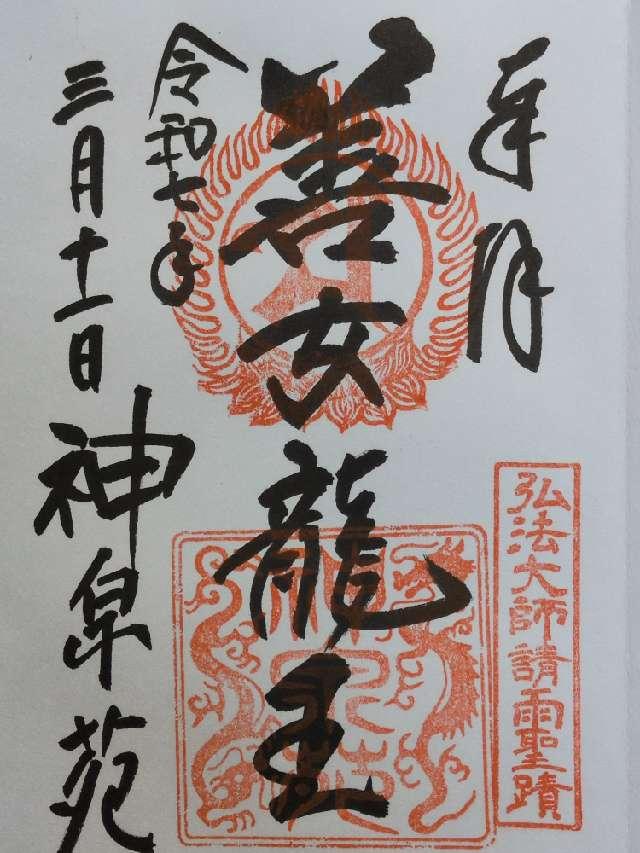 奉拝
弘法大師請雨聖蹟
善女龍王
令和七年
三月十一日
神泉苑